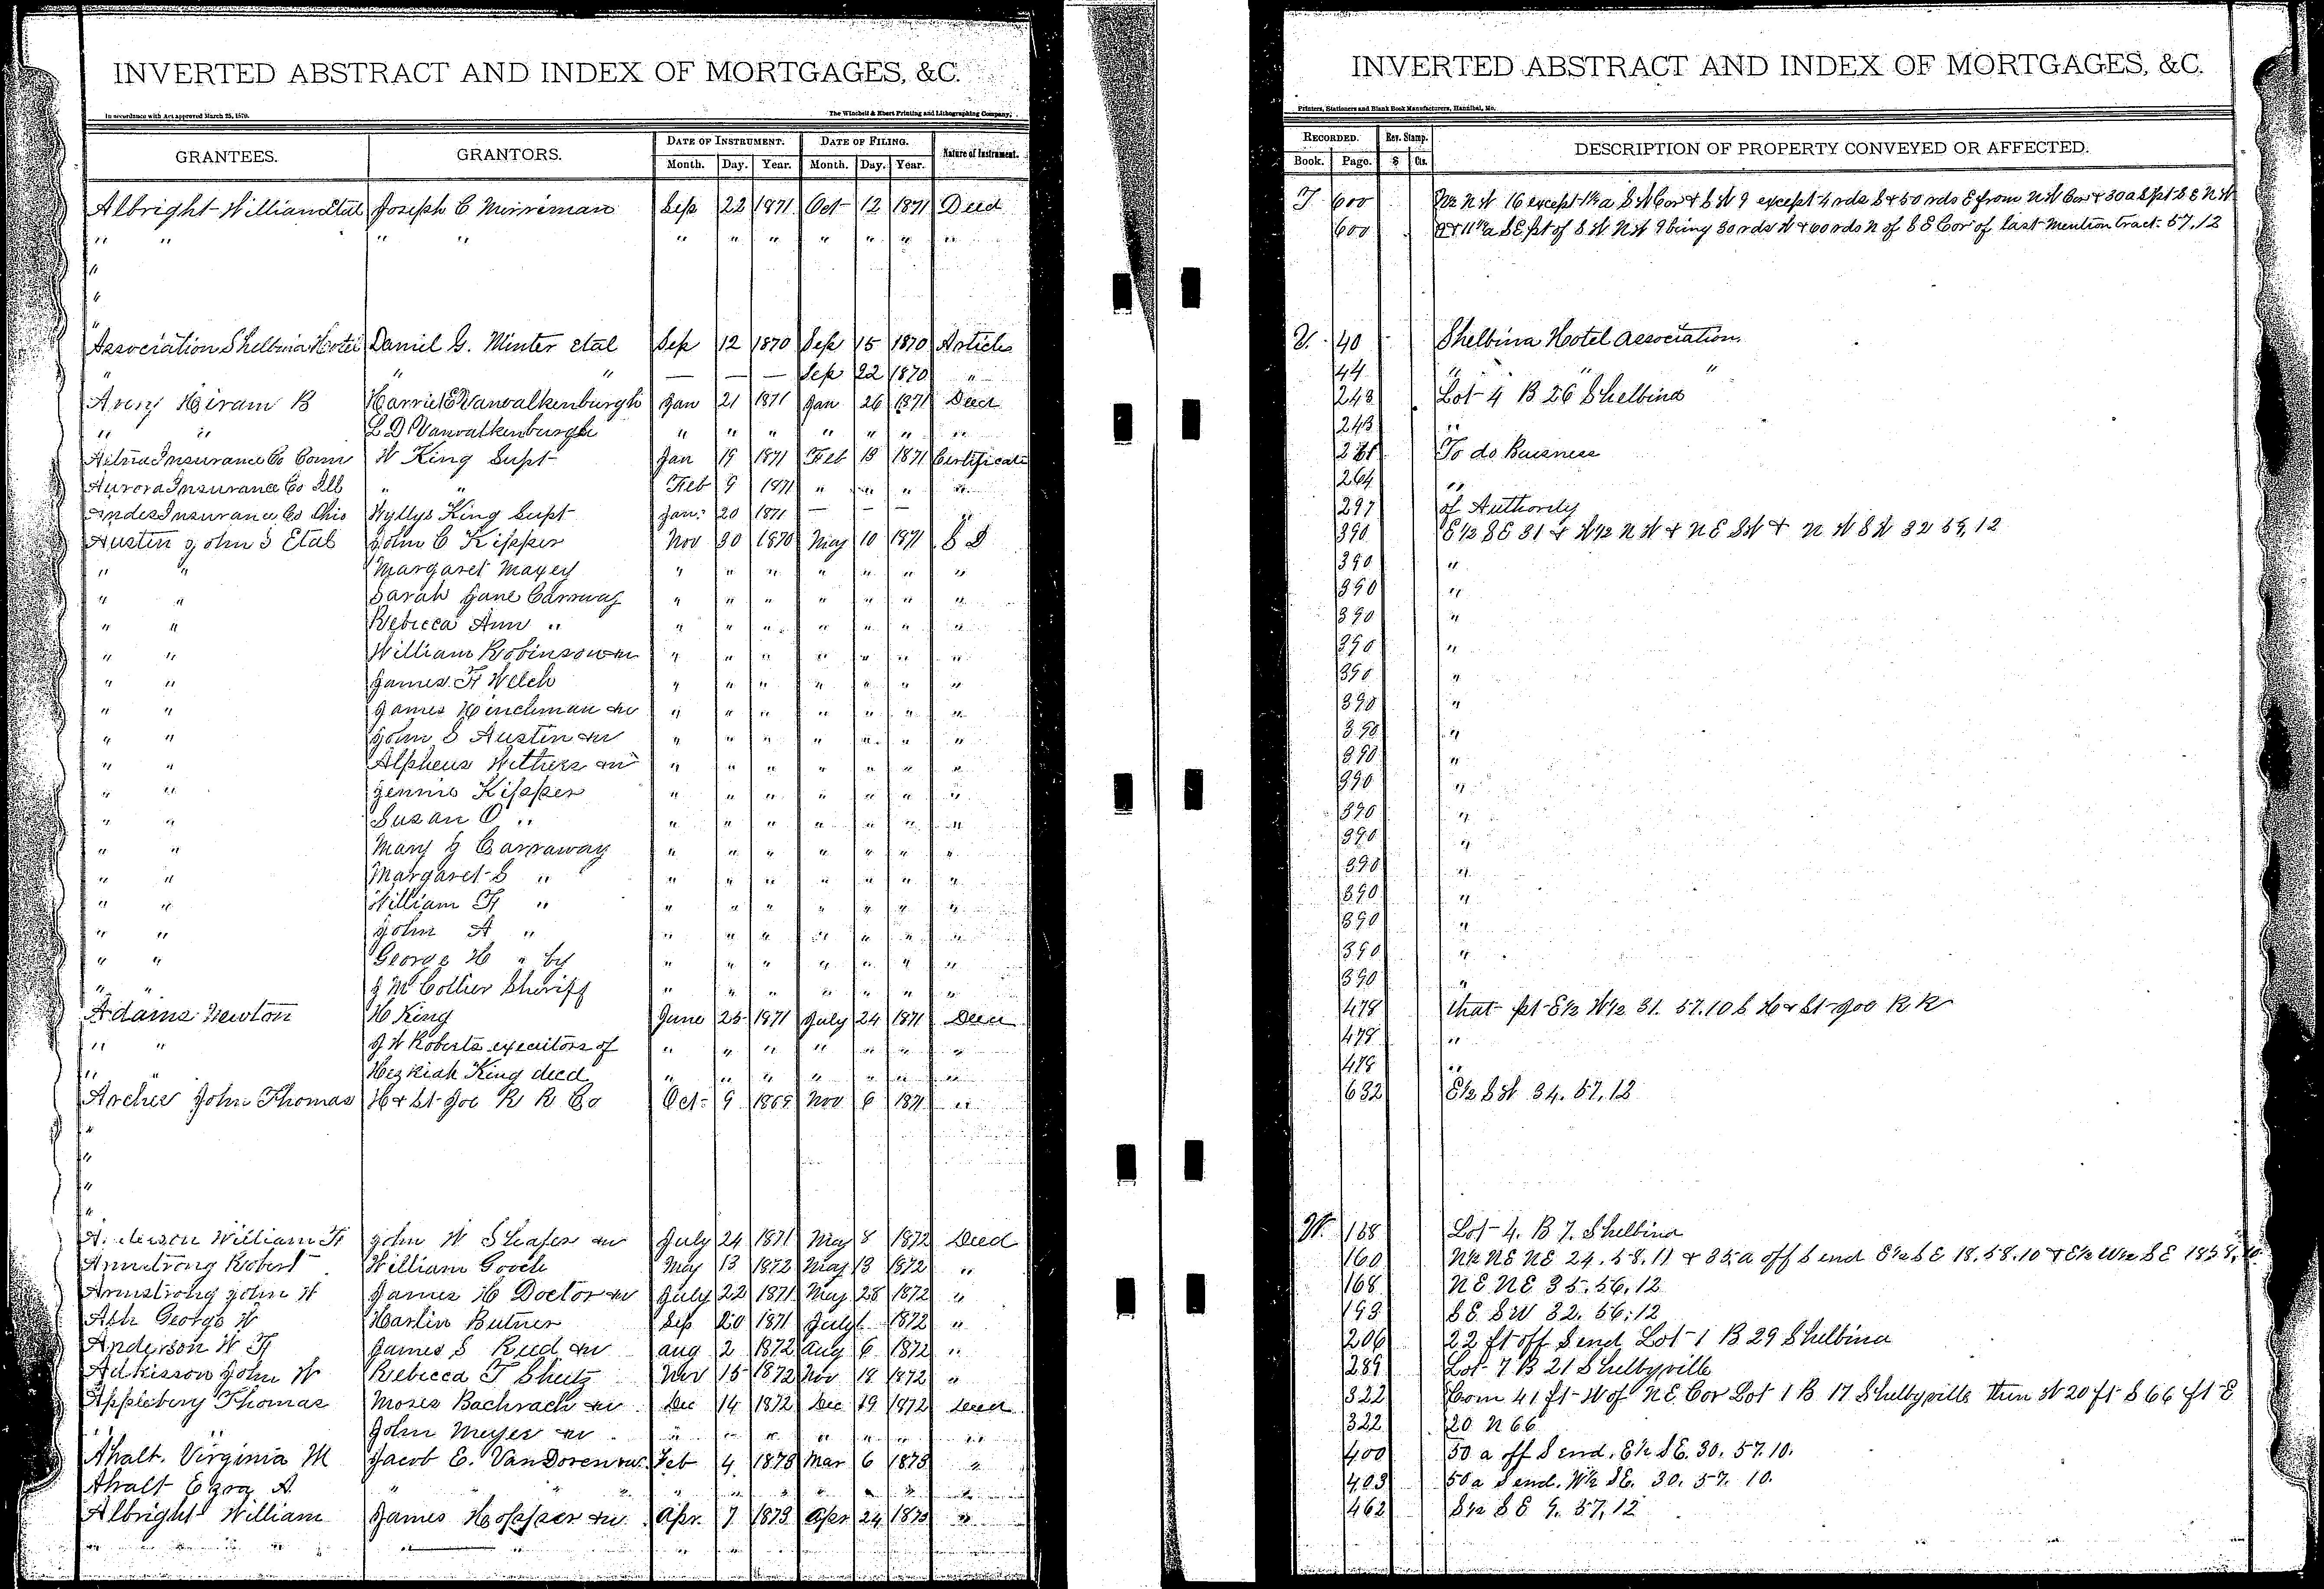 INVERTED ABSTRACT AND INDEX OF MORTGAGES, &C.
In accordance with Act approved March 25, 1870.
The Winchell & Ebert Printing and Lithographing Company,
GRANTEES. GRANTORS. DATE OF INSTRUMENT. DATE OF FILING. Nature of Instrument.
Month. Day. Year. Month. Day. Year.
Albright William Etal Joseph C Merriman Sep 22 1871 Oct 12 1871 Deed
" " " " " " " " " " "
"
"
"
Association Shelbina Hotel Daniel G. Minter etal Sep 12 1870 Sep 15 1870 Articles
" " " — — — Sep 22 1870 "
Avery Hiram B Harriet E Vanvalkenburgh Jan 21 1871 Jan 26 1871 Deed
" " L D Vanvalkenburgh " " " " " " "
Aetna Insurance Co Conn W King Supt Jan 19 1871 Feb 13 1871 Certificate
Aurora Insurance Co Ill " " Feb 9 1871 " " " "
Andes Insurance Co Ohio Wyllys King Supt Jan. 20 1871 — — — "
Austin John S Etal John C Kipper Nov 30 1870 May 10 1871 S D
" " Margaret Mayey " " " " " " "
" " Sarah Jane Carraway " " " " " " "
" " Rebecca Ann " " " " " " " "
" " William Robinson " " " " " " "
" " James F Welch " " " " " " "
" " James Hinchman " " " " " " "
" " John S Austin " " " " " " "
" " Alpheus Withers " " " " " " "
" " Jennie Kipper " " " " " " "
" " Susan O " " " " " " " "
" " Mary J Carraway " " " " " " "
" " Margaret S " " " " " " " "
" " William F " " " " " " " "
" " John A " " " " " " " "
" " George H " by " " " " " " "
" " J M Collier Sheriff " " " " " " "
Adams Newton H King June 25 1871 July 24 1871 Deed
" " J W Roberts executors of " " " " " " "
" " Hezkiah King decd " " " " " " "
Archer John Thomas H & St Joe R R Co Oct 9 1869 Nov 6 1871 "
"
"
"
"
Anderson William F John W Sleafer July 24 1871 May 8 1872 Deed
Armstrong Robert William Gooch May 13 1872 May 13 1872 "
Armstrong John W James H Doctor July 22 1871 May 28 1872 "
Ash George W Harlin Butner Sep 20 1871 July 1 1872 "
Anderson W F James S Reed Aug 2 1872 Aug 6 1872 "
Adkisson John W Rebecca T Shutz Nov 15 1872 Nov 18 1872 "
Appleberry Thomas Moses Bachrach Dec 14 1872 Dec 19 1872 Deed
" John Meyer " " " " " " "
Ahalt. Virginia M Jacob E. VanDoren Feb 4 1873 Mar 6 1873 "
Ahalt Ezra A. " " " " " " " " "
Albright William James Hopper Apr. 7 1873 Apr 24 1873 "
INVERTED ABSTRACT AND INDEX OF MORTGAGES, &C.
Printers, Stationers and Blank Book Manufacturers, Hannibal, Mo.
RECORDED. Rev. Stamp. DESCRIPTION OF PROPERTY CONVEYED OR AFFECTED.
Book. Page. $ Cts.
T 600 N½ N W 16 except 1½ a S W Cor & S W 9 except 4 rds S & 50 rds E from N W Cor & 30 a S pt S E N W
600 9 & 11½ a S E pt of S W N W 9 being 30 rds W & 60 rds N of S E Cor of last mention tract. 57, 12
V. 40 Shelbina Hotel Association
44 " " "
243 Lot 4 B 26 Shelbina
243 "
261 To do Buisness
264 "
297 of Authority
390 E½ SE 31 & W½ N W & N E S W & N W S W 32 59, 12
390 "
390 "
390 "
390 "
390 "
390 "
390 "
390 "
390 "
390 "
390 "
390 "
390 "
390 "
390 "
390 "
478 that pt E½ W½ 31. 57. 10 S H & St Joe R R
478 "
478 "
632 E½ S W 34. 57, 12
W. 158 Lot 4. B 7. Shelbina
160 N½ NE NE 24. 58. 11 & 35. a off S end E½ S E 18. 58. 10 & E½ W½ S E 18 58, 10
168 N E N E 35. 56. 12
193 S E. S W 32. 56. 12
206 22 ft off S end Lot 1 B 29 Shelbina
289 Lot 7 B 21 Shelbyville
322 Com 41 ft W of N E Cor Lot 1 B 17 Shelbyville then W 20 ft S 66 ft E
322 20 N 66
400 50 a off S end. E½ S E. 30. 57. 10.
403 50 a S end. W½ SE. 30. 57. 10.
462 S½ S E 9. 57, 12